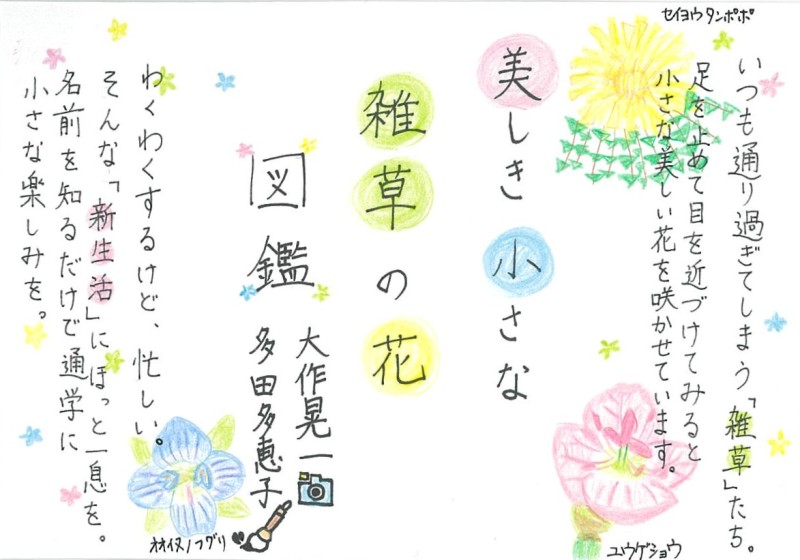 セイヨウタンポポ
いつも通り過ぎてしまう「雑草」たち。
足を止めて目を近づけてみると
小さな美しい花を咲かせています。
ユウゲショウ
美しき小さな
雑草の花
図鑑
大作晃一
多田多恵子
オオイヌノフグリ
わくわくするけど、忙しい。
そんな「新生活」にほっと一息を。
名前を知るだけで通学に
小さな楽しみを。